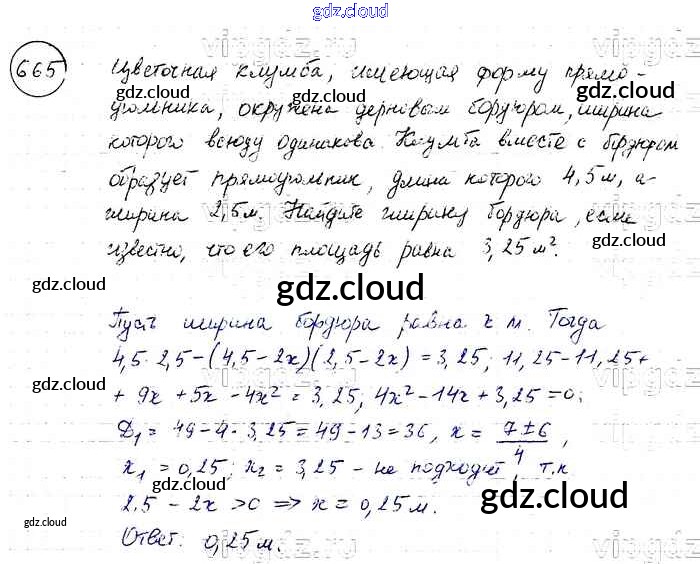 gdz.cloud
665 Цветочная клумба, имеющая форму прямо-
угольника, окружена дерновым бордюром, ширина
которого всюду одинакова. Клумба вместе с бордюром
образует прямоугольник, длина которого 4,5 м, а
ширина 2,5 м. Найдите ширину бордюра, если
известно, что его площадь равна 3,25 м².
gdz.cloud
Пусть ширина бордюра равна x м. Тогда
4,5·2,5-(4,5-2x)(2,5-2x)=3,25; 11,25-11,25+
+9x+5x-4x²=3,25; 4x²-14x+3,25=0;
D₁=49-4·3,25=49-13=36, x=(7±6)/4,
x₁=0,25; x₂=3,25 - не подходит, т.к
2,5-2x>0 => x=0,25 м.
Ответ: 0,25 м.
gdz.cloud